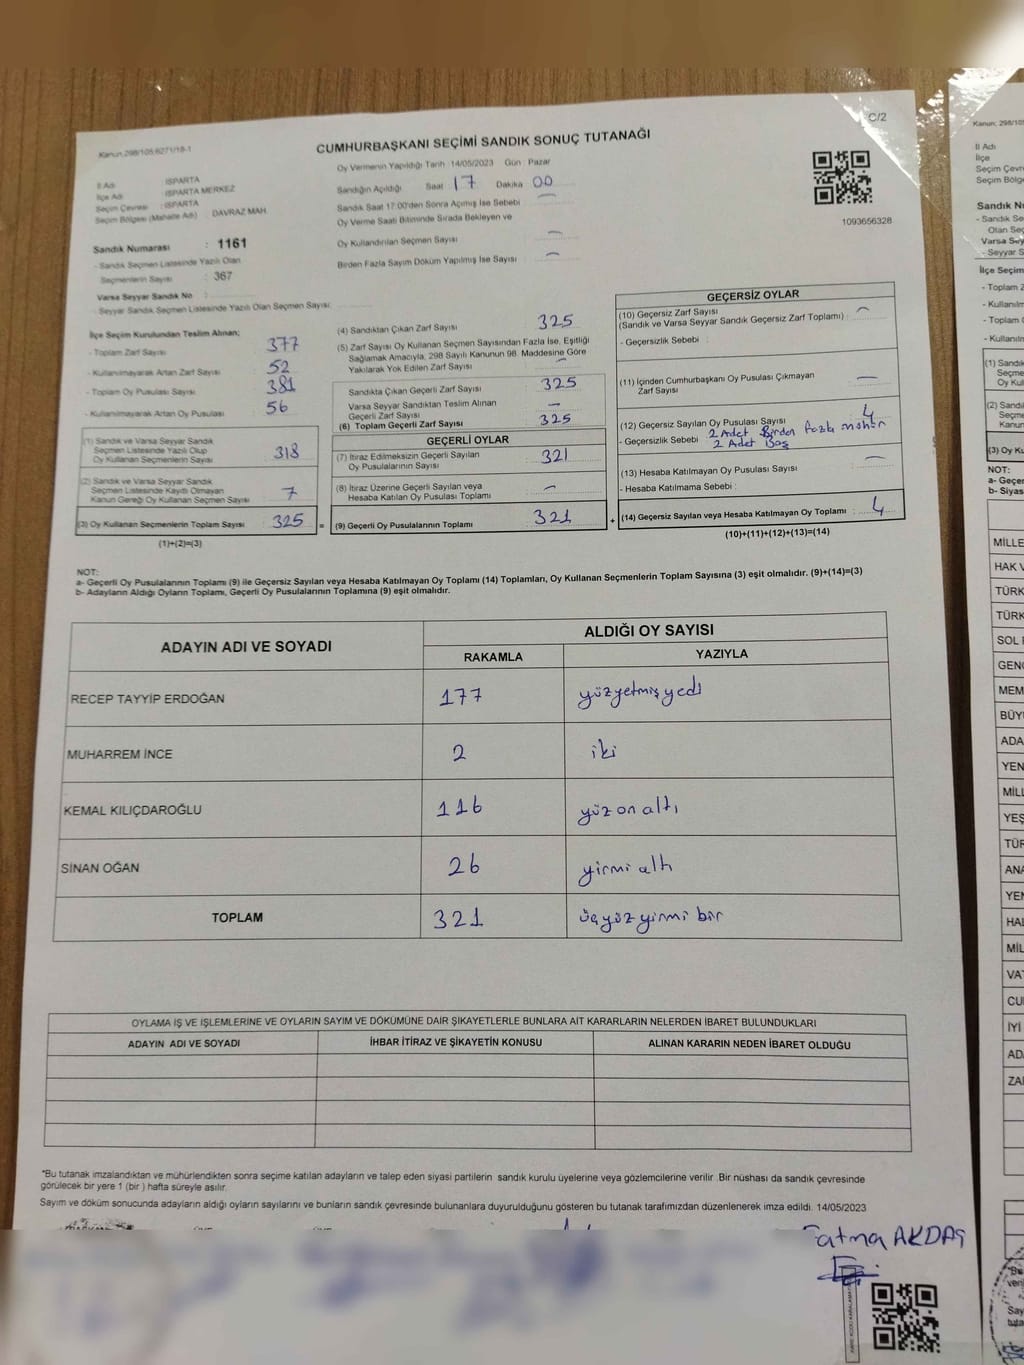 C/2
Kanun:298/105;6271/18-1
CUMHURBAŞKANI SEÇİMİ SANDIK SONUÇ TUTANAĞI
Oy Vermenin Yapıldığı Tarih :14/05/2023 Gün : Pazar
İl Adı : ISPARTA
İlçe Adı : ISPARTA MERKEZ
Seçim Çevresi : ISPARTA
Seçim Bölgesi (Mahalle Adı) DAVRAZ MAH.
Sandığın Açıldığı Saat 17 Dakika 00
Sandık Saat 17:00'den Sonra Açılmış İse Sebebi
Oy Verme Saati Bitiminde Sırada Bekleyen ve
Oy Kullandırılan Seçmen Sayısı
Birden Fazla Sayım Döküm Yapılmış İse Sayısı :
1093656328
Sandık Numarası : 1161
- Sandık Seçmen Listesinde Yazılı Olan
Seçmenlerin Sayısı : 367
Varsa Seyyar Sandık No :
- Seyyar Sandık Seçmen Listesinde Yazılı Olan Seçmen Sayısı:
İlçe Seçim Kurulundan Teslim Alınan;
- Toplam Zarf Sayısı 377
- Kullanılmayarak Artan Zarf Sayısı 52
- Toplam Oy Pusulası Sayısı 381
- Kullanılmayarak Artan Oy Pusulası 56
(1) Sandık ve Varsa Seyyar Sandık
Seçmen Listesinde Yazılı Olup
Oy Kullanan Seçmenlerin Sayısı 318
(2) Sandık ve Varsa Seyyar Sandık
Seçmen Listesinde Kayıtlı Olmayan
Kanun Gereği Oy Kullanan Seçmen Sayısı 7
(3) Oy Kullanan Seçmenlerin Toplam Sayısı 325 =
(1)+(2)=(3)
(4) Sandıktan Çıkan Zarf Sayısı 325
(5) Zarf Sayısı Oy Kullanan Seçmen Sayısından Fazla İse, Eşitliği
Sağlamak Amacıyla, 298 Sayılı Kanunun 98. Maddesine Göre
Yakılarak Yok Edilen Zarf Sayısı
Sandıkta Çıkan Geçerli Zarf Sayısı 325
Varsa Seyyar Sandıktan Teslim Alınan
Geçerli Zarf Sayısı
(6) Toplam Geçerli Zarf Sayısı 325
GEÇERLİ OYLAR
(7) İtiraz Edilmeksizin Geçerli Sayılan
Oy Pusulalarının Sayısı 321
(8) İtiraz Üzerine Geçerli Sayılan veya
Hesaba Katılan Oy Pusulası Toplamı
(9) Geçerli Oy Pusulalarının Toplamı 321 +
GEÇERSİZ OYLAR
(10) Geçersiz Zarf Sayısı
(Sandık ve Varsa Seyyar Sandık Geçersiz Zarf Toplamı) :
- Geçersizlik Sebebi :
(11) İçinden Cumhurbaşkanı Oy Pusulası Çıkmayan
Zarf Sayısı
(12) Geçersiz Sayılan Oy Pusulası Sayısı 4
- Geçersizlik Sebebi 2 Adet Birden fazla mühür
2 Adet Boş
(13) Hesaba Katılmayan Oy Pusulası Sayısı
- Hesaba Katılmama Sebebi :
(14) Geçersiz Sayılan veya Hesaba Katılmayan Oy Toplamı : 4
(10)+(11)+(12)+(13)=(14)
NOT:
a- Geçerli Oy Pusulalarının Toplamı (9) ile Geçersiz Sayılan veya Hesaba Katılmayan Oy Toplamı (14) Toplamları, Oy Kullanan Seçmenlerin Toplam Sayısına (3) eşit olmalıdır. (9)+(14)=(3)
b- Adayların Aldığı Oyların Toplamı, Geçerli Oy Pusulalarının Toplamına (9) eşit olmalıdır.
ADAYIN ADI VE SOYADI
ALDIĞI OY SAYISI
RAKAMLA YAZIYLA
RECEP TAYYİP ERDOĞAN 177 yüzyetmişyedi
MUHARREM İNCE 2 iki
KEMAL KILIÇDAROĞLU 116 yüz on altı
SİNAN OĞAN 26 yirmi altı
TOPLAM 321 üçyüz yirmi bir
OYLAMA İŞ VE İŞLEMLERİNE VE OYLARIN SAYIM VE DÖKÜMÜNE DAİR ŞİKAYETLERLE BUNLARA AİT KARARLARIN NELERDEN İBARET BULUNDUKLARI
ADAYIN ADI VE SOYADI İHBAR İTİRAZ VE ŞİKAYETİN KONUSU ALINAN KARARIN NEDEN İBARET OLDUĞU
*Bu tutanak imzalandıktan ve mühürlendikten sonra seçime katılan adayların ve talep eden siyasi partilerin sandık kurulu üyelerine veya gözlemcilerine verilir .Bir nüshası da sandık çevresinde
görülecek bir yere 1 (bir) hafta süreyle asılır.
Sayım ve döküm sonucunda adayların aldığı oyların sayılarını ve bunların sandık çevresinde bulunanlara duyurulduğunu gösteren bu tutanak tarafımızdan düzenlenerek imza edildi. 14/05/2023
Fatma AKDAŞ
Kanun; 298/105
İl Adı
İlçe
Seçim Çevre
Seçim Bölge
Sandık Nu
- Sandık Se
Olan Seç
Varsa Sey
- Seyyar S
İlçe Seçim
- Toplam Z
- Kullanılm
- Toplam O
- Kullanılm
(1) Sandık
Seçme
Oy Kul
(2) Sandı
Seçme
Kanun
(3) Oy Ku
NOT:
a- Geçer
b- Siyas
MİLLE
HAK V
TÜRK
TÜRK
SOL P
GENÇ
MEM
BÜYÜ
ADA
YEN
MİLL
YEŞ
TÜR
ANA
YEN
HAL
MİL
VAT
CU
İYİ
AD
ZA